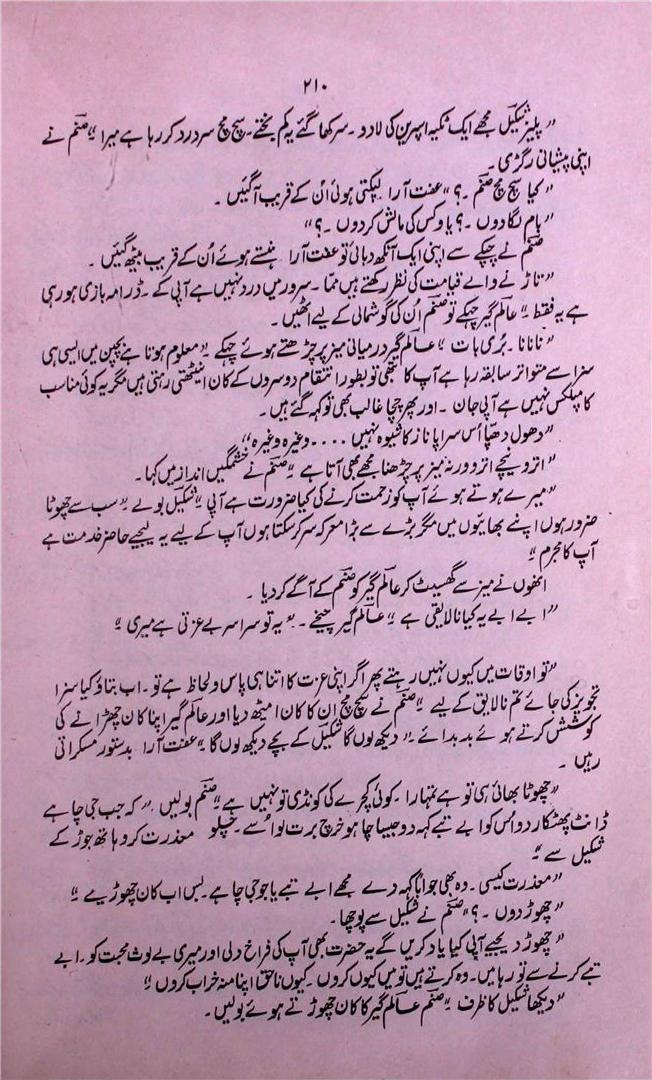 ۲۱۰
”پلیز شکیل مجھے ایک ٹکیہ اسپرین کی لا دو۔ سر کھا گئے یہ کم بخت۔ سچ مچ سر درد کر رہا ہے میرا“ صنم نے
اپنی پیشانی رگڑی۔
”کیا سچ مچ صنم۔؟“ عفت آرا لپکتی ہوئی اُن کے قریب آ گئیں۔
”بام لگا دوں۔؟ یا وکس کی مالش کر دوں۔؟“
صنم نے چپکے سے اپنی ایک آنکھ دبائی تو عفت آرا ہنستے ہوئے اُن کے قریب بیٹھ گئیں۔
”تاڑنے والے قیامت کی نظر رکھتے ہیں ممّا۔ سرور میں درد نہیں ہے آپی کے۔ ڈرامہ بازی ہو رہی
ہے یہ فقط“ عالم گیر چہکے تو صنم اُن کی گوشمالی کے لیے اٹھیں۔
”نا نا نا۔ بُری بات“ عالم گیر درمیانی میز پر چڑھتے ہوئے چہکے ”معلوم ہوتا ہے بچپن میں ایسی ہی
سزا سے متواتر سابقہ رہا ہے آپ کا تبھی تو بطور انتقام دوسروں کے کان اینٹھتی رہتی ہیں مگر یہ کوئی مناسب
کامپلکس نہیں ہے آپی جان۔ اور پھر چچا غالب بھی تو کہہ گئے ہیں۔
”دھول دھپّا اُس سراپا ناز کا شیوہ نہیں .... وغیرہ وغیرہ“
”اترو نیچے اترو ورنہ میز پر چڑھنا مجھے بھی آتا ہے“ صنم نے خشمگیں انداز میں کہا۔
”میرے ہوتے ہوئے آپ کو زحمت کرنے کی کیا ضرورت ہے آپی“ شکیل بولے ”سب سے چھوٹا
ضرور ہوں اپنے بھائیوں میں مگر بڑے سے بڑا معرکہ سر کر سکتا ہوں آپ کے لیے یہ لیجیے حاضر خدمت ہے
آپ کا مجرم“
انھوں نے میز سے گھسیٹ کر عالم گیر کو صنم کے آگے کر دیا۔
”ابے ابے یہ کیا نالایقی ہے“ عالم گیر چیخے۔ ”یہ تو سراسر بے عزتی ہے میری“
”تو اوقات میں کیوں نہیں رہتے پھر اگر اپنی عزت کا اتنا ہی پاس و لحاظ ہے تو۔ اب بتاؤ کیا سزا
تجویز کی جائے تم نالایق کے لیے“ صنم نے سچ مچ ان کا کان امیٹھ دیا اور عالم گیر اپنا کان چھڑانے کی
کوشش کرتے ہوئے بدبدائے ”دیکھ لوں گا شکیل کے بچے دیکھ لوں گا“ عفت آرا بدستور مسکراتی
رہیں۔
”چھوٹا بھائی ہی تو ہے تمہارا۔ کوئی کچرے کی کونڈی تو نہیں ہے“ صنم بولیں ”کہ جب جی چاہے
ڈانٹ پھٹکار دو اُس کو ابے تبے کہہ دو جیسا چاہو خرچ برت لو اُسے۔ چلو معذرت کرو ہاتھ جوڑ کے
شکیل سے“
”معذرت کیسی۔ وہ بھی جواباً کہہ دے مجھے ابے تبے یا جو جی چاہے۔ بس اب کان چھوڑیے“
”چھوڑ دوں۔؟“ صنم نے شکیل سے پوچھا۔
”چھوڑ دیجیے آپی کیا یاد کریں گے یہ حضرت بھی آپ کی فراخ دلی اور میری بے لوث محبت کو۔ ابے
تبے کرنے سے تو رہا میں۔ وہ کرتے ہیں تو میں کیوں کروں۔ کیوں ناحق اپنا منہ خراب کروں“
”دیکھا شکیل کا ظرف“ صنم عالم گیر کا کان چھوڑتے ہوئے بولیں۔